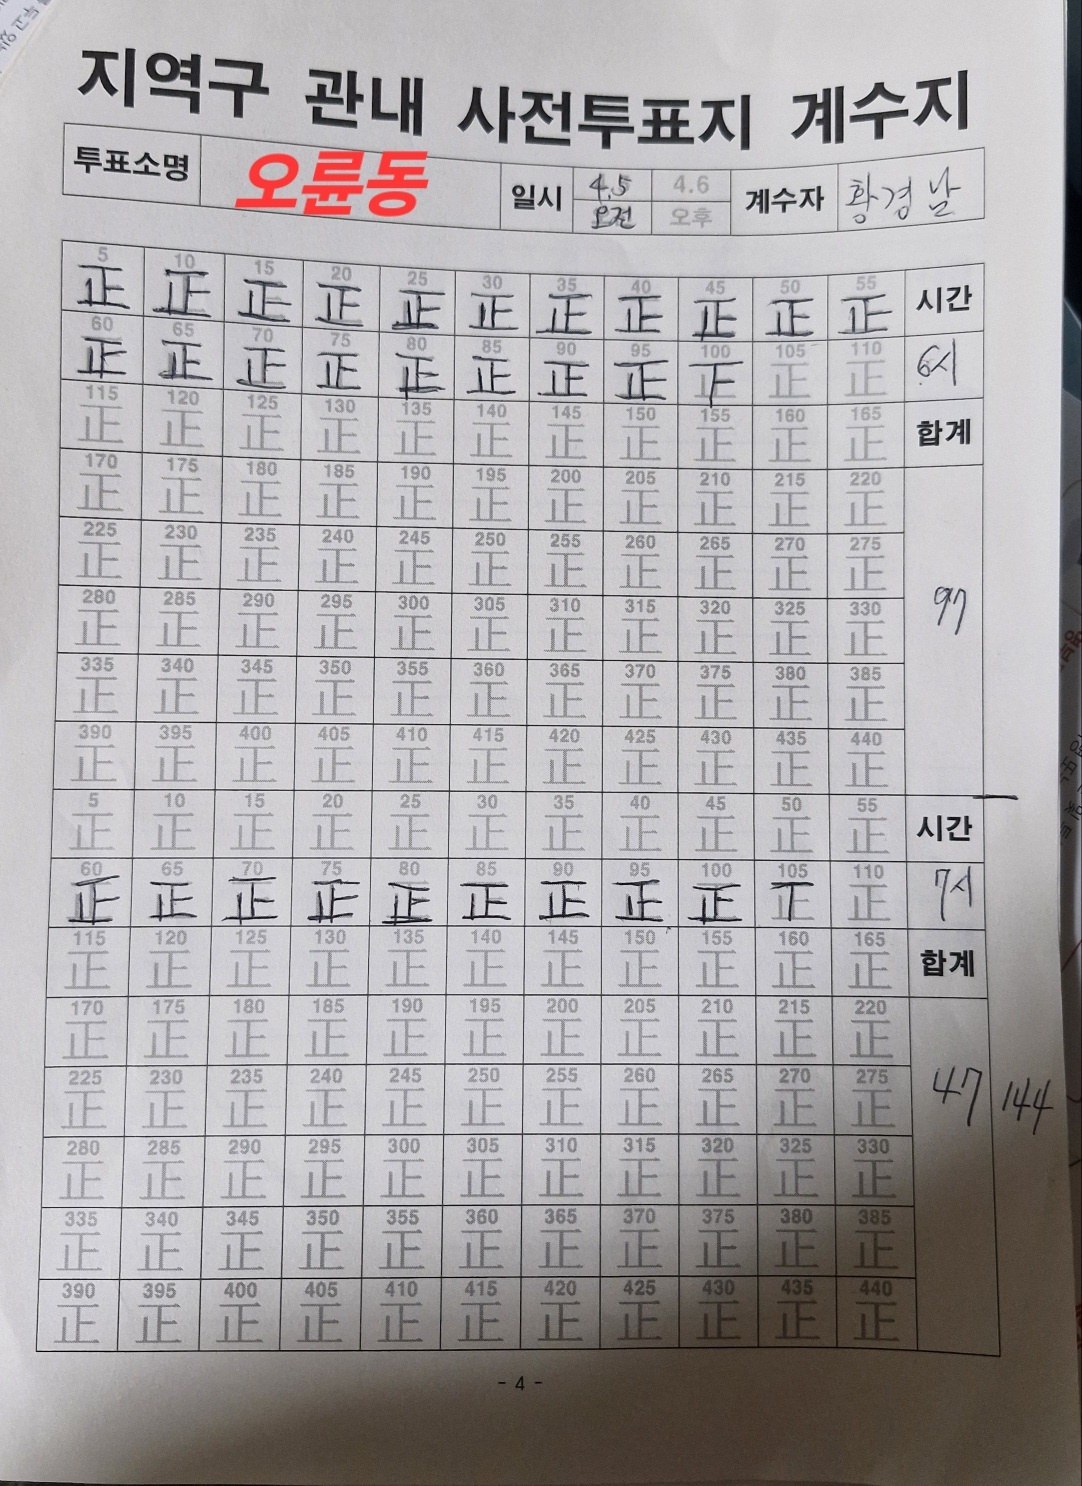 지역구 관내 사전투표지 계수지
투표소명 오륜동 일시 4.5 4.6 계수자 황경남
오전 오후
5 10 15 20 25 30 35 40 45 50 55 시간
正 正 正 正 正 正 正 正 正 正 正
60 65 70 75 80 85 90 95 100 105 110 6시
正 正 正 正 正 正 正 正 正 正 正
115 120 125 130 135 140 145 150 155 160 165 합계
正 正 正 正 正 正 正 正 正 正 正
170 175 180 185 190 195 200 205 210 215 220
正 正 正 正 正 正 正 正 正 正 正
225 230 235 240 245 250 255 260 265 270 275
正 正 正 正 正 正 正 正 正 正 正
280 285 290 295 300 305 310 315 320 325 330 97
正 正 正 正 正 正 正 正 正 正 正
335 340 345 350 355 360 365 370 375 380 385
正 正 正 正 正 正 正 正 正 正 正
390 395 400 405 410 415 420 425 430 435 440
正 正 正 正 正 正 正 正 正 正 正
5 10 15 20 25 30 35 40 45 50 55 시간
正 正 正 正 正 正 正 正 正 正 正
60 65 70 75 80 85 90 95 100 105 110 7시
正 正 正 正 正 正 正 正 正 正 正
115 120 125 130 135 140 145 150 155 160 165 합계
正 正 正 正 正 正 正 正 正 正 正
170 175 180 185 190 195 200 205 210 215 220
正 正 正 正 正 正 正 正 正 正 正
225 230 235 240 245 250 255 260 265 270 275 47 144
正 正 正 正 正 正 正 正 正 正 正
280 285 290 295 300 305 310 315 320 325 330
正 正 正 正 正 正 正 正 正 正 正
335 340 345 350 355 360 365 370 375 380 385
正 正 正 正 正 正 正 正 正 正 正
390 395 400 405 410 415 420 425 430 435 440
正 正 正 正 正 正 正 正 正 正 正
- 4 -